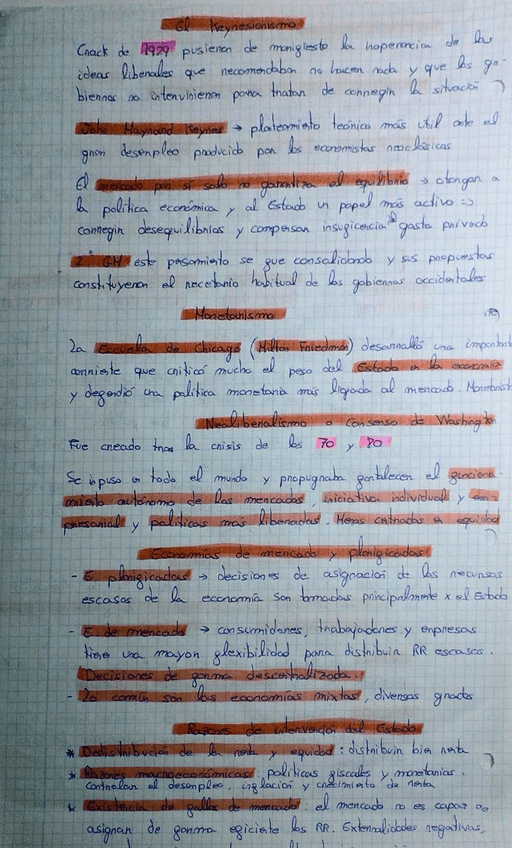 El Keynesianismo
Crack de 1929 pusieron de manifiesto la inoperancia de las
ideas liberales que recomendaban no hacer nada y que los go-
biernos no intervinieran para tratar de corregir la situación
John Maynard Keynes → planteamiento teórico más útil ante el
gran desempleo producido por los economistas neoclásicos
El mercado por sí solo no garantiza el equilibrio → otorgan a
la política económica y al Estado un papel más activo =>
corregir desequilibrios y compensan insuficencia gasto privado
2ª GM este pensamiento se fue consolidando y sus propuestas
constituyeron el recetario habitual de los gobiernos occidentales
Monetarismo
La Escuela de Chicago (Milton Friedman) desarrolló una important
corriente que criticó mucho el peso del Estado en la economía
y defendió una política monetaria más ligada al mercado. Monetarist
Neoliberalismo o Consenso de Washington
Fue creado tras la crisis de los 70 y 80
Se impuso en todo el mundo y propugnaba fortalecer el funciona-
miento autónomo de los mercados, iniciativa individual y em-
presarial y políticas mas liberadas. Menos centradas en equidad
Economías de mercado y planificadas
- E. planificadas → decisiones de asignación de los recursos
escasos de la economía son tomadas principalmente x el Estado
- E. de mercado → consumidores, trabajadores y empresas
tienen una mayor flexibilidad para distribuir RR escasos.
Decisiones de forma descentralizada.
- Lo común son las economías mixtas, diversos grados
Razones de intervención del Estado
* Redistribución de la renta y equidad: distribuir bien renta
* Razones macroeconómicas: políticas fiscales y monetarias.
Controlan el desempleo, inflación y crecimiento de renta
* Existencia de fallos de mercado: el mercado no es capaz de
asignar de forma eficiente los RR. Externalidades negativas,